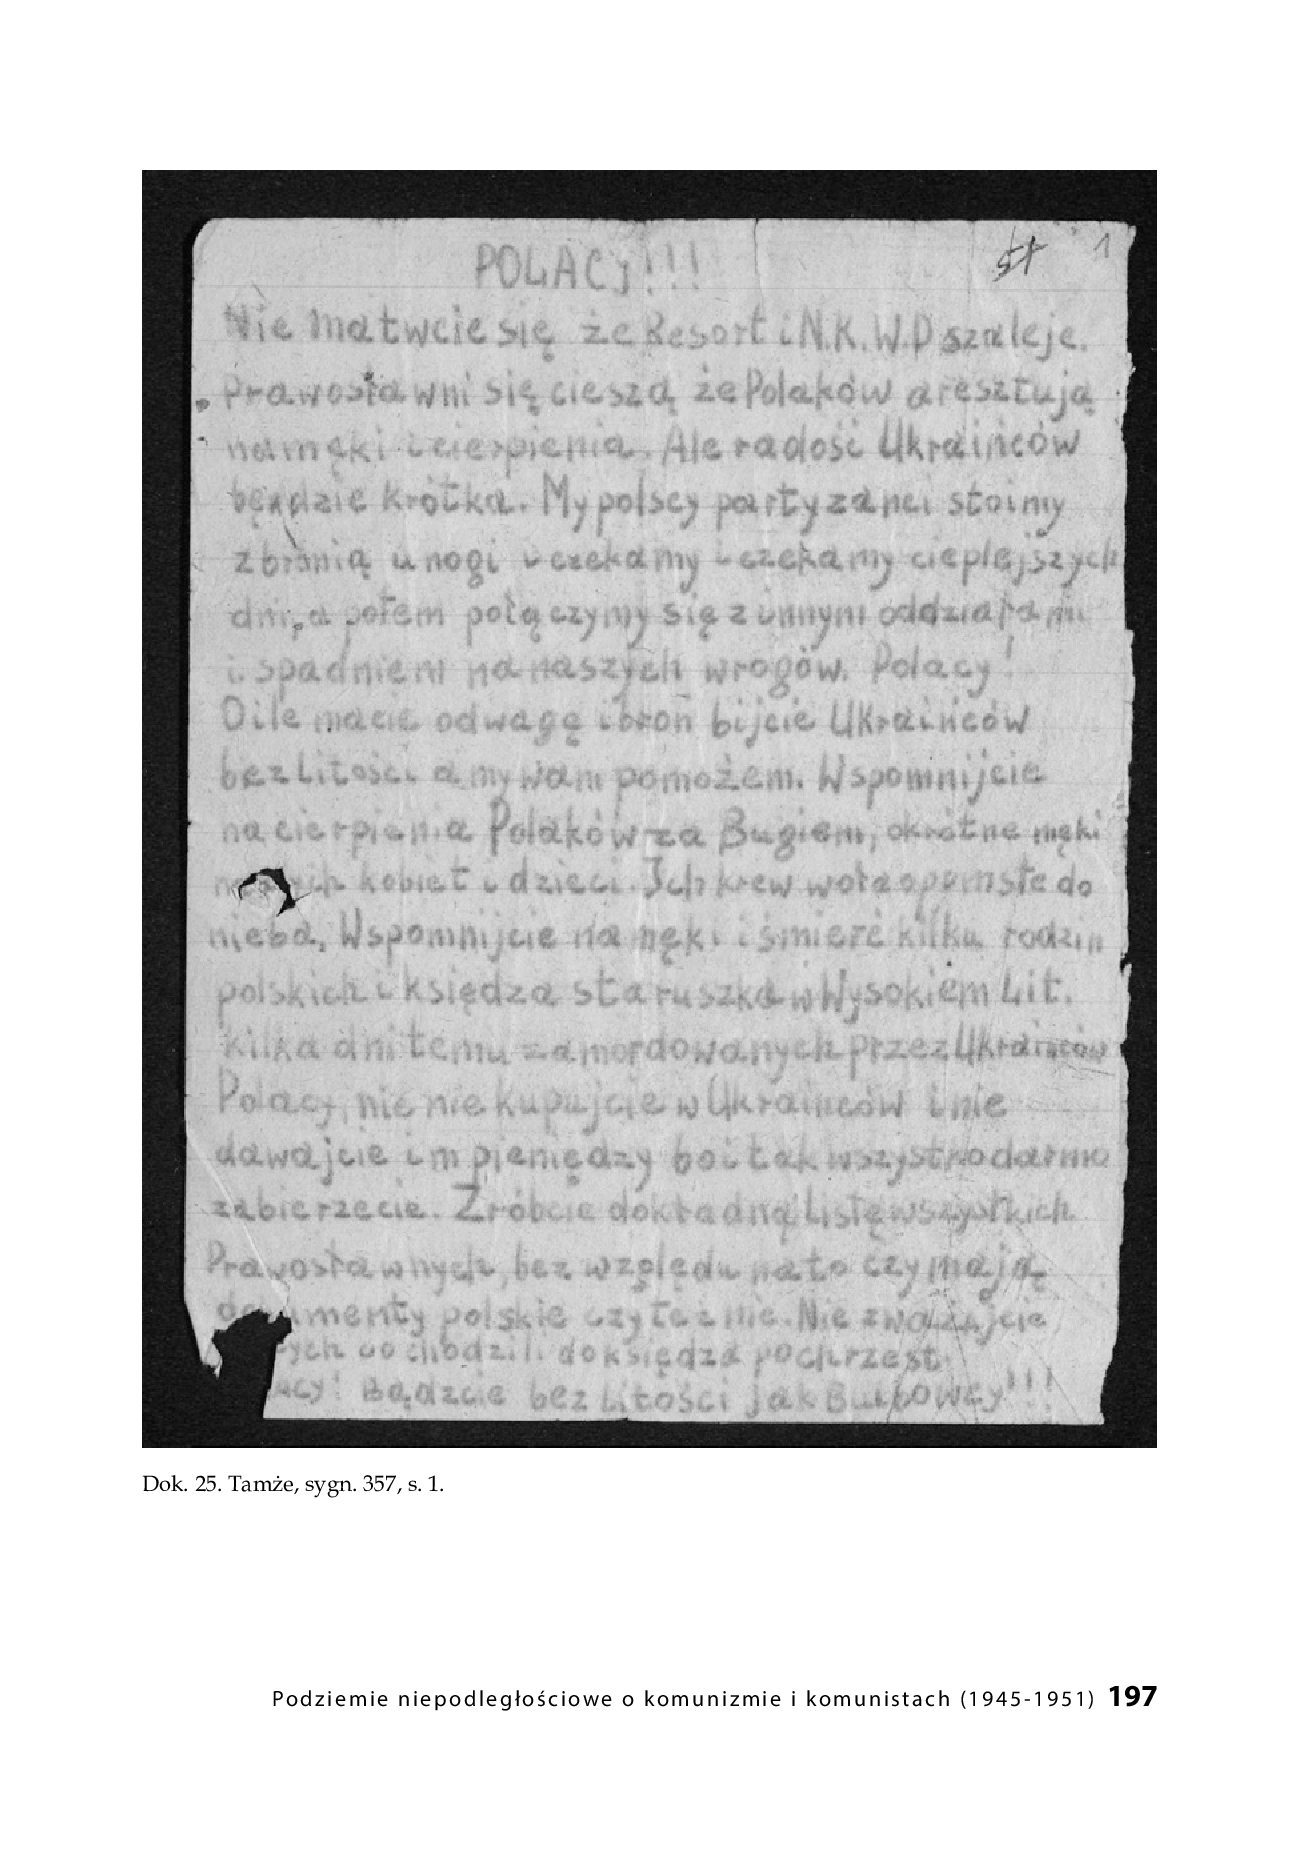 POLACY!!!
st 1
Nie matwcie się że Resort i N.K.W.D szaleje.
Prawosławni się cieszą że Polaków aresztują
na męki i cierpienia. Ale radość Ukraińców
będzie krótka. My polscy partyzanci stoimy
z bronią u nogi i czekamy i czekamy cieplejszych
dni, a potem połączymy się z innymi oddziałami
i spadniem na naszych wrogów. Polacy!
O ile macie odwagę i broń bijcie Ukraińców
bez litości a my wam pomożem. Wspomnijcie
na cierpienia Polaków za Bugiem, okrótne męki
kobiet i dzieci. Ich krew woła o pomste do
nieba. Wspomnijcie na męki i śmierć kilku rodzin
polskich i księdza staruszka w Wysokiem Lit.
kilka dni temu zamordowanych przez Ukraińców
Polacy, nic nie kupujcie w Ukraińców i nie
dawajcie im pieniędzy bo i tak wszystko darmo
zabierzecie. Zróbcie dokładną listę wszystkich
Prawosławnych, bez względu na to czy mają
dokumenty polskie czy też nie. Nie zważajcie
co chodzili do księdza po chrzest.
Bądzcie bez litości jak Bulbowcy!!!
Dok. 25. Tamże, sygn. 357, s. 1.
Podziemie niepodległościowe o komunizmie i komunistach (1945-1951) 197